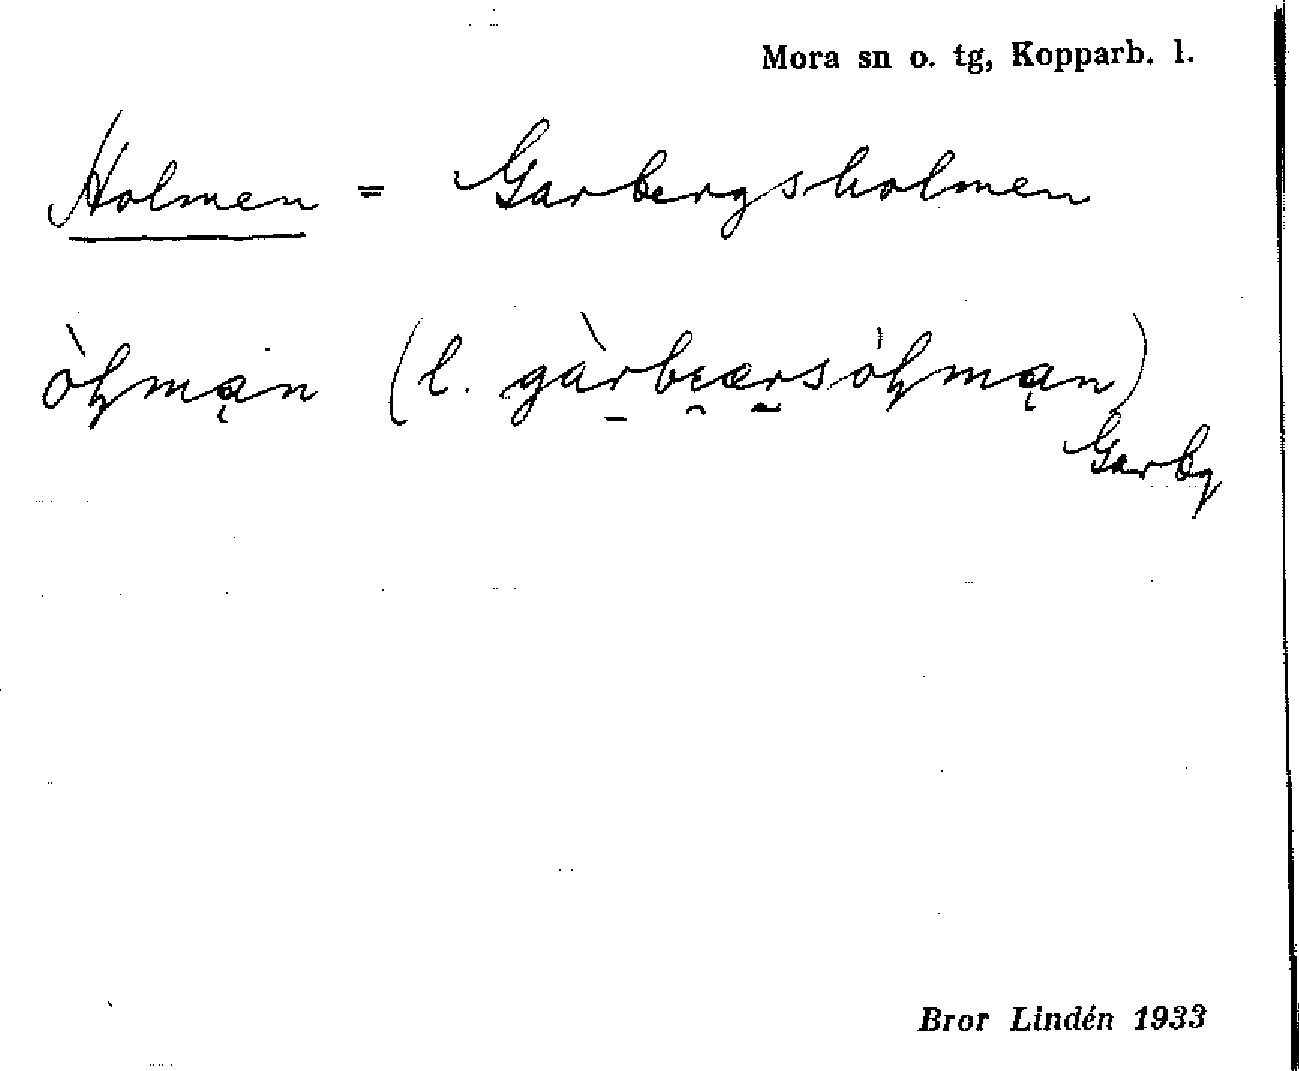 Mora sn o. tg, Kopparb. l.
Holmen = Garbergsholmen
(l.
Garbg
Bror Lindén 1933